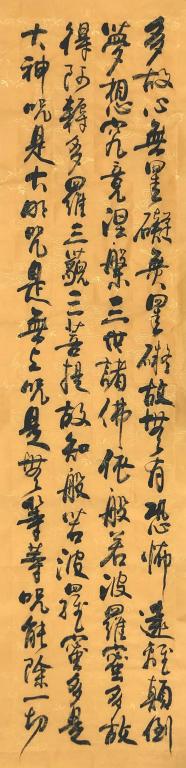 多故心無罣礙無罣礙故無有恐怖遠離顛倒
夢想究竟涅槃三世諸佛依般若波羅蜜多故
得阿耨多羅三藐三菩提故知般若波羅蜜多是
大神咒是大明咒是無上咒是無等等咒能除一切